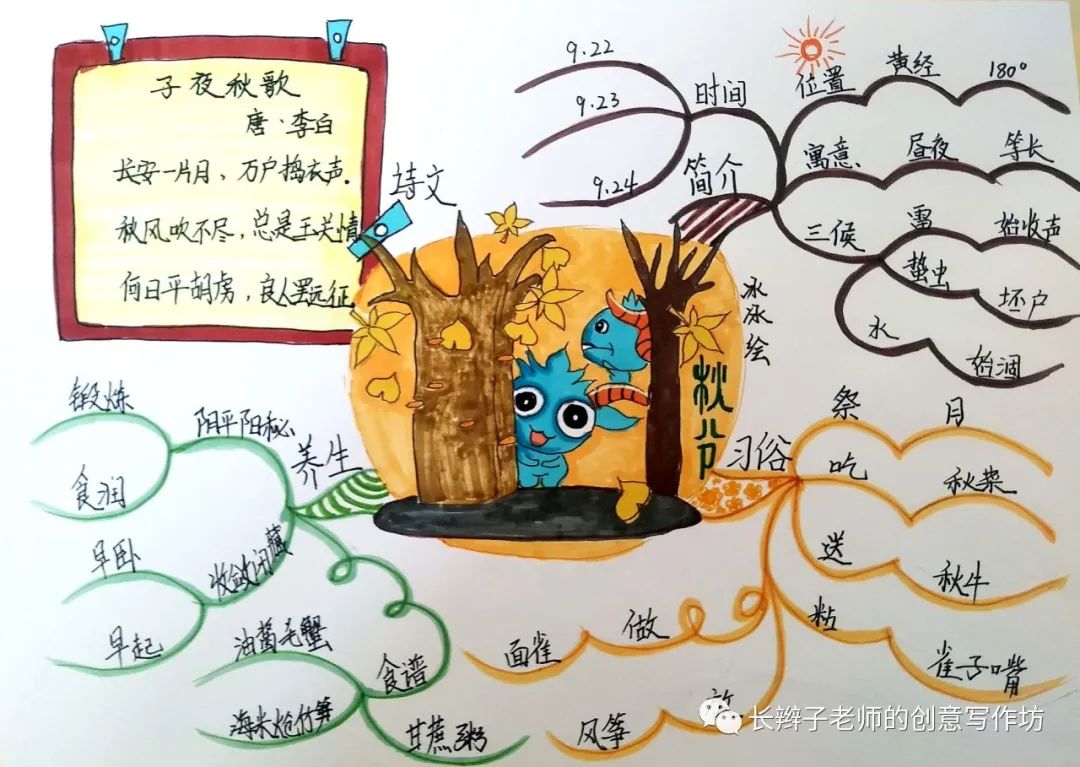 子夜秋歌
唐·李白
长安一片月，万户捣衣声．
秋风吹不尽，总是玉关情
何日平胡虏，良人罢远征．
诗文
简介
时间
9.22
9.23
9.24
位置
黄经
180°
寓意
昼夜
等长
三候
雷
始收声
蛰虫
坯户
水
始涸
冰冰绘
秋分
习俗
祭
月
吃
秋菜
送
秋牛
粘
雀子嘴
做
面雀
放
风筝
养生
阴平阳秘
锻炼
食润
收敛闭藏
早卧
早起
食谱
油酱毛蟹
海米炝竹笋
甘蔗粥
长辫子老师的创意写作坊